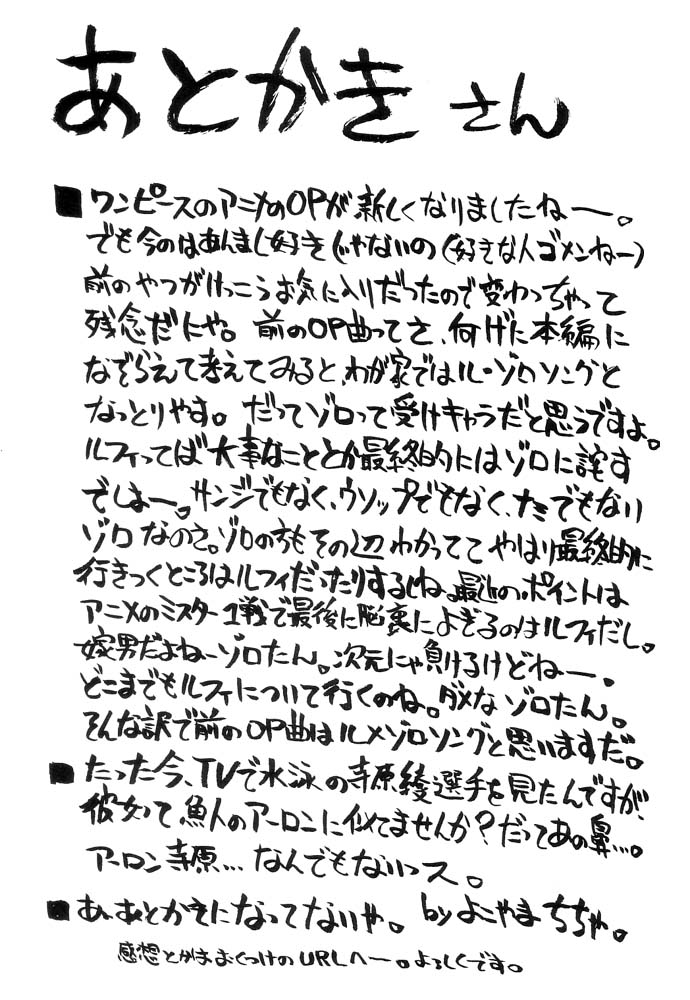 あとがき さん
■ワンピースのアニメのOPが新しくなりましたねー。
でも今のはあんまし好きじゃないの(好きな人ゴメンねー)
前のやつがけっこうお気に入りだったので変わっちゃって
残念だにゃ。前のOP曲ってさ、何げに本編に
なぞらえて考えてみると、わが家ではル・ゾロソングと
なっとりやす。だってゾロって受けキャラだと思うですよ。
ルフィってば大事なこととか最終的にはゾロに託す
でしょー。サンジでもなく、ウソップでもなく、ナミでもない
ゾロなのさ。ゾロの方もその辺わかってて やはり最終的に
行きつくところはルフィだったりするしね。最近のポイントは
アニメのミスター1戦で最後に脳裏によぎるのはルフィだし。
嫁男だよねーゾロたん。次元にゃ負けるけどねー。
どこまでもルフィについて行くのね。ダメなゾロたん。
そんな訳で前のOP曲はル×ゾロソングと思いますだ。
■たった今、TVで水泳の寺原綾選手を見たんですが、
彼女って魚人のアーロンに似てませんか?だってあの鼻…。
アーロン寺原…なんでもないっス。
■あ、あとがきになってないや。 by よこやまちちゃ。
感想とかはおくつけのURLへー。よろしくです。